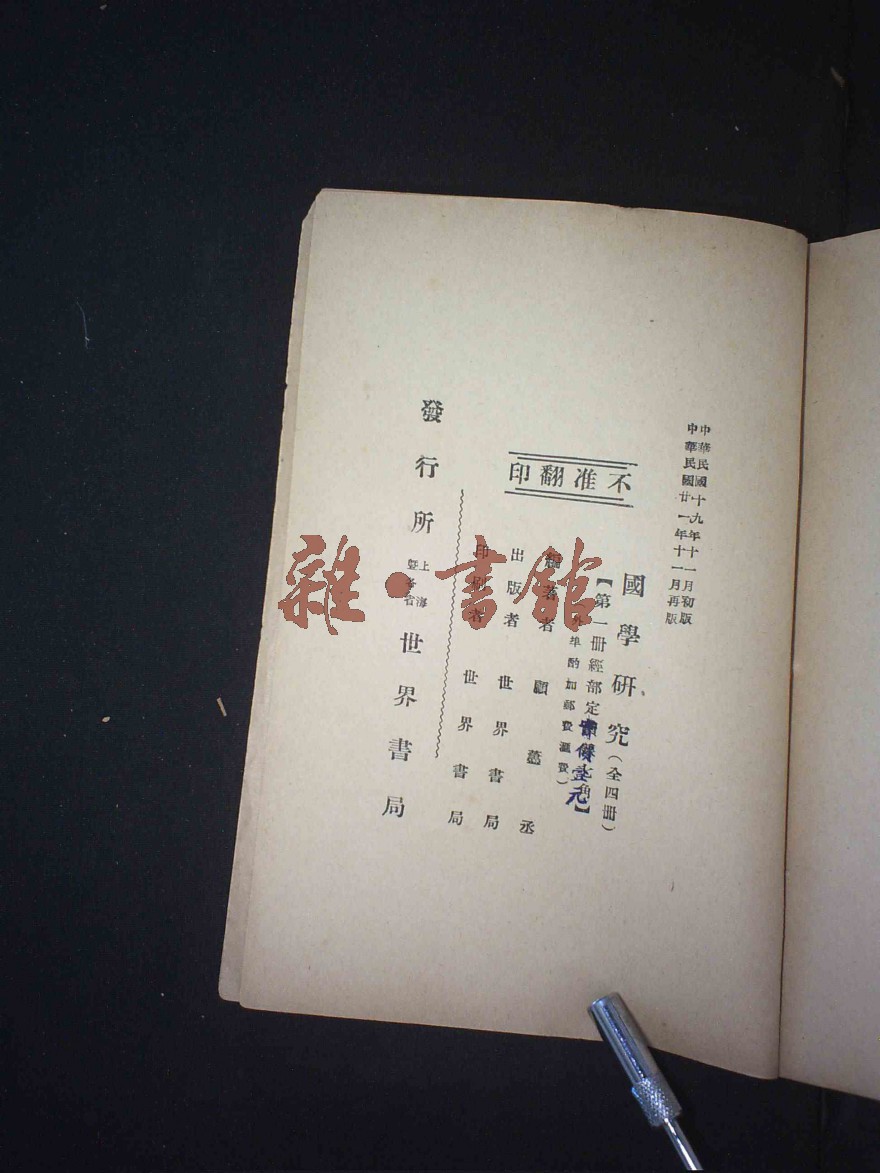 中華民國十九年十一月初版
中華民國廿一年十一月再版
不准翻印
國學研究（全四冊）
【第一冊經部定實價壹元】
外埠酌加郵費滙費）
編著者 顧藎丞
出版者 世界書局
印刷者 世界書局
發行所 上海暨各省 世界書局
雜·書館